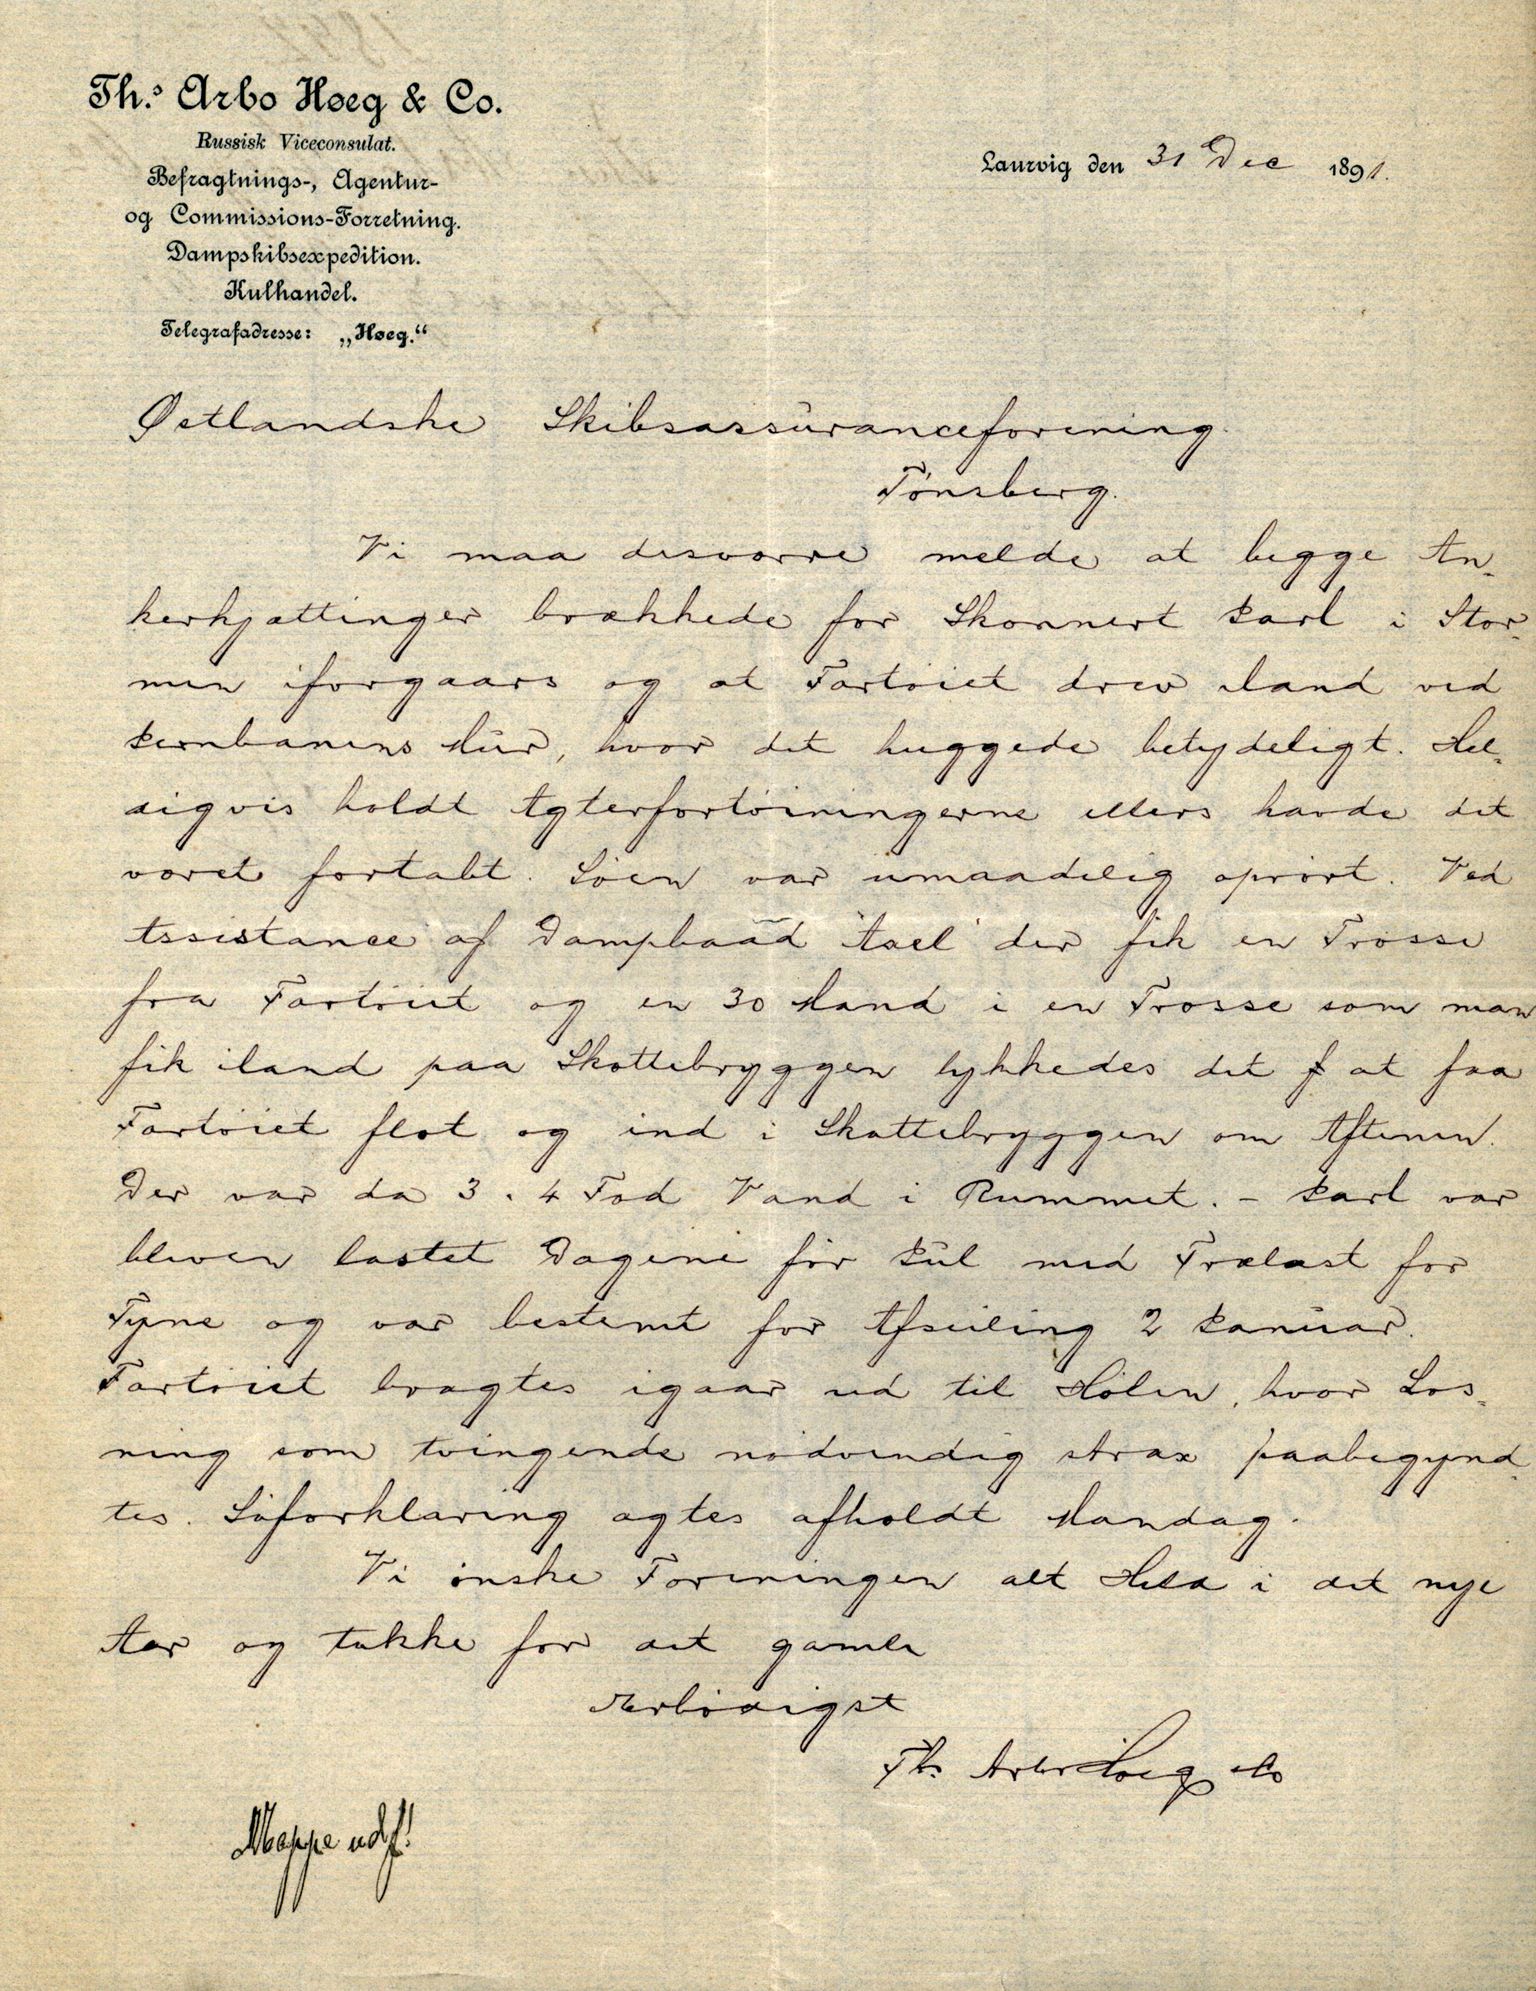 Th.s Arbo Høeg & Co.
Russisk Viceconsulat.
Befragtnings-, Agentur-
og Commissions-Forretning.
Dampskibsexpedition.
Kulhandel.
Telegrafadresse: „Høeg.“
Laurvig den 31 Dec 1891.
Østlandske Skibsassüranceforening
Tönsberg.
Vi maa desværre melde at begge An-
kerkjættinger brækkede for Skonnert Karl i Stor-
men iforgaars og at Fartöiet drev iland ved
Jernbanens Mür, hvor det huggede betydeligt. Hel-
digvis holdt Agterfortöiningerne ellers havde det
været fortabt. Söen var umaadelig oprört. Ved
Assistance af Dampbaad "Axel" der fik en Trosse
fra Fartöiet og en 30 Mand i en Trosse som man
fik iland paa Skottebryggen lykkedes det f at faa
Fartöiet flot og ind i Skottebryggen om Aftenen.
Der var da 3 . 4 Fod Vand i Rummet. – Karl var
bleven lastet Dagene för Jül med Trælast for
Tyne og var bestemt for Afseiling 2 Januar.
Fartöiet bragtes igaar ud til Hölen, hvor Los-
ning som tvingende nödvendig strax paabegynd-
tes. Söforklaring agtes afholdt Mandag.
Vi önske Foreningen alt Held i det nye
Aar og takke for det gamle
Ærbödigst
Th. Arbo Høeg & Co
Mappe udf!